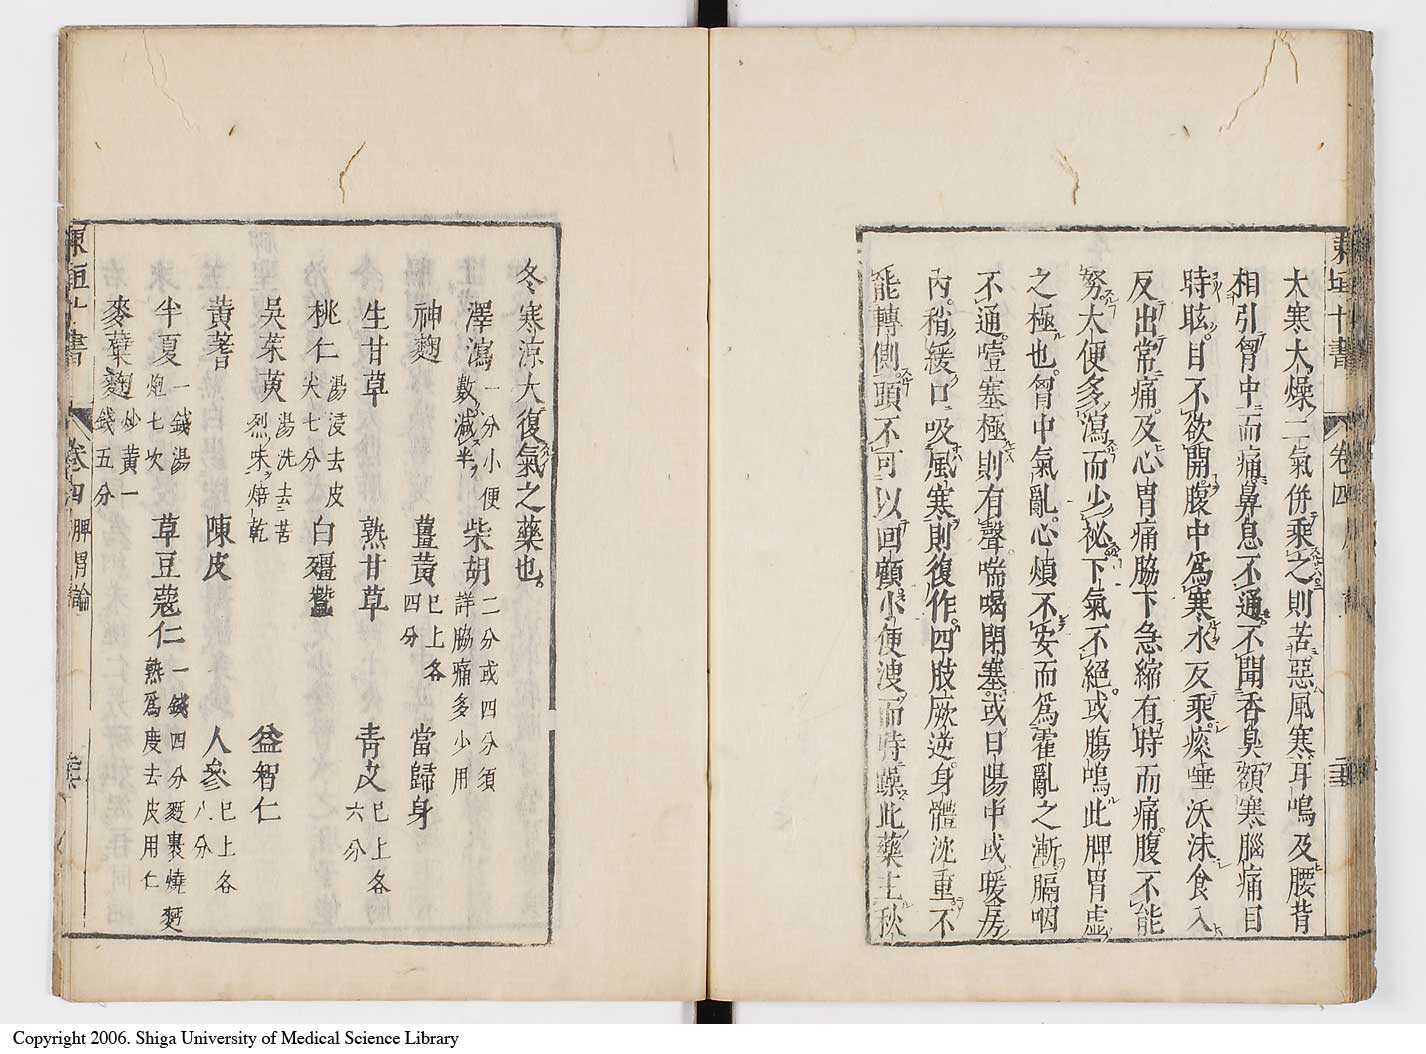 東垣十書
卷四
大寒大燥二氣併乘之則苦惡風寒耳鳴及腰背
相引胷中而痛鼻息不通不聞香臭額寒腦痛目
時眩目不欲開腹中爲寒水反乘痰唾沃沫食入
反出常痛及心胃痛脇下急縮有時而痛腹不能
努大便多瀉而少祕下氣不絕或腸鳴此脾胃虛
之極也胷中氣亂心煩不安而爲霍亂之漸膈咽
不通噎塞極則有聲喘喝閉塞或日陽中或暖房
內稍緩口吸風寒則復作四肢厥逆身體沈重不
能轉側頭不可以回顧小便溲而時躁此藥主秋
冬寒涼大復氣之藥也
澤瀉一分小便數減半 柴胡二分或四分須詳脇痛多少用
神麴 薑黃已上各四分 當歸身
生甘草 熟甘草 青皮已上各六分
桃仁湯浸去皮尖七分 白殭蠶
吳茱萸湯洗去苦烈味焙乾 益智仁
黃蓍 陳皮 人參已上各八分
半夏一錢湯炮七次 草豆蔻仁一錢四分麪裹燒麪熟爲度去皮用仁
麥蘖麴炒黃一錢五分
東垣十書
卷四
脾胃論